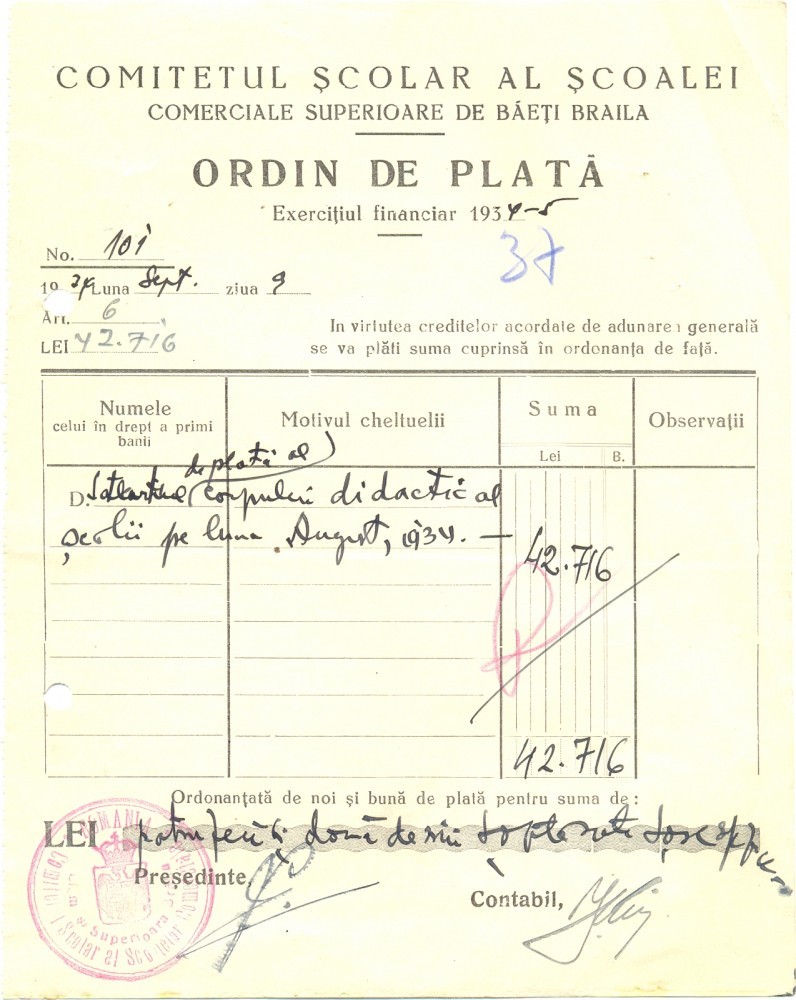 COMITETUL ȘCOLAR AL ȘCOALEI
COMERCIALE SUPERIOARE DE BĂEȚI BRAILA
ORDIN DE PLATĂ
Exercițiul financiar 1934-5
No. 101
37
1934 Luna Sept. ziua 9
Art. 6
LEI 42.716
In virtutea creditelor acordate de adunarea generală
se va plăti suma cuprinsă în ordonanța de față.
Numele
celui în drept a primi
banii
Motivul cheltuelii
Suma
Lei B.
Observații
de plată al
D. Statul corpului didactic al
școlii pe luna August, 1934. —
42.716
42.716
Ordonanțată de noi și bună de plată pentru suma de:
LEI patruzeci și două de mii șapte sute șasesprezece
Președinte,
Contabil,
ROMANIA